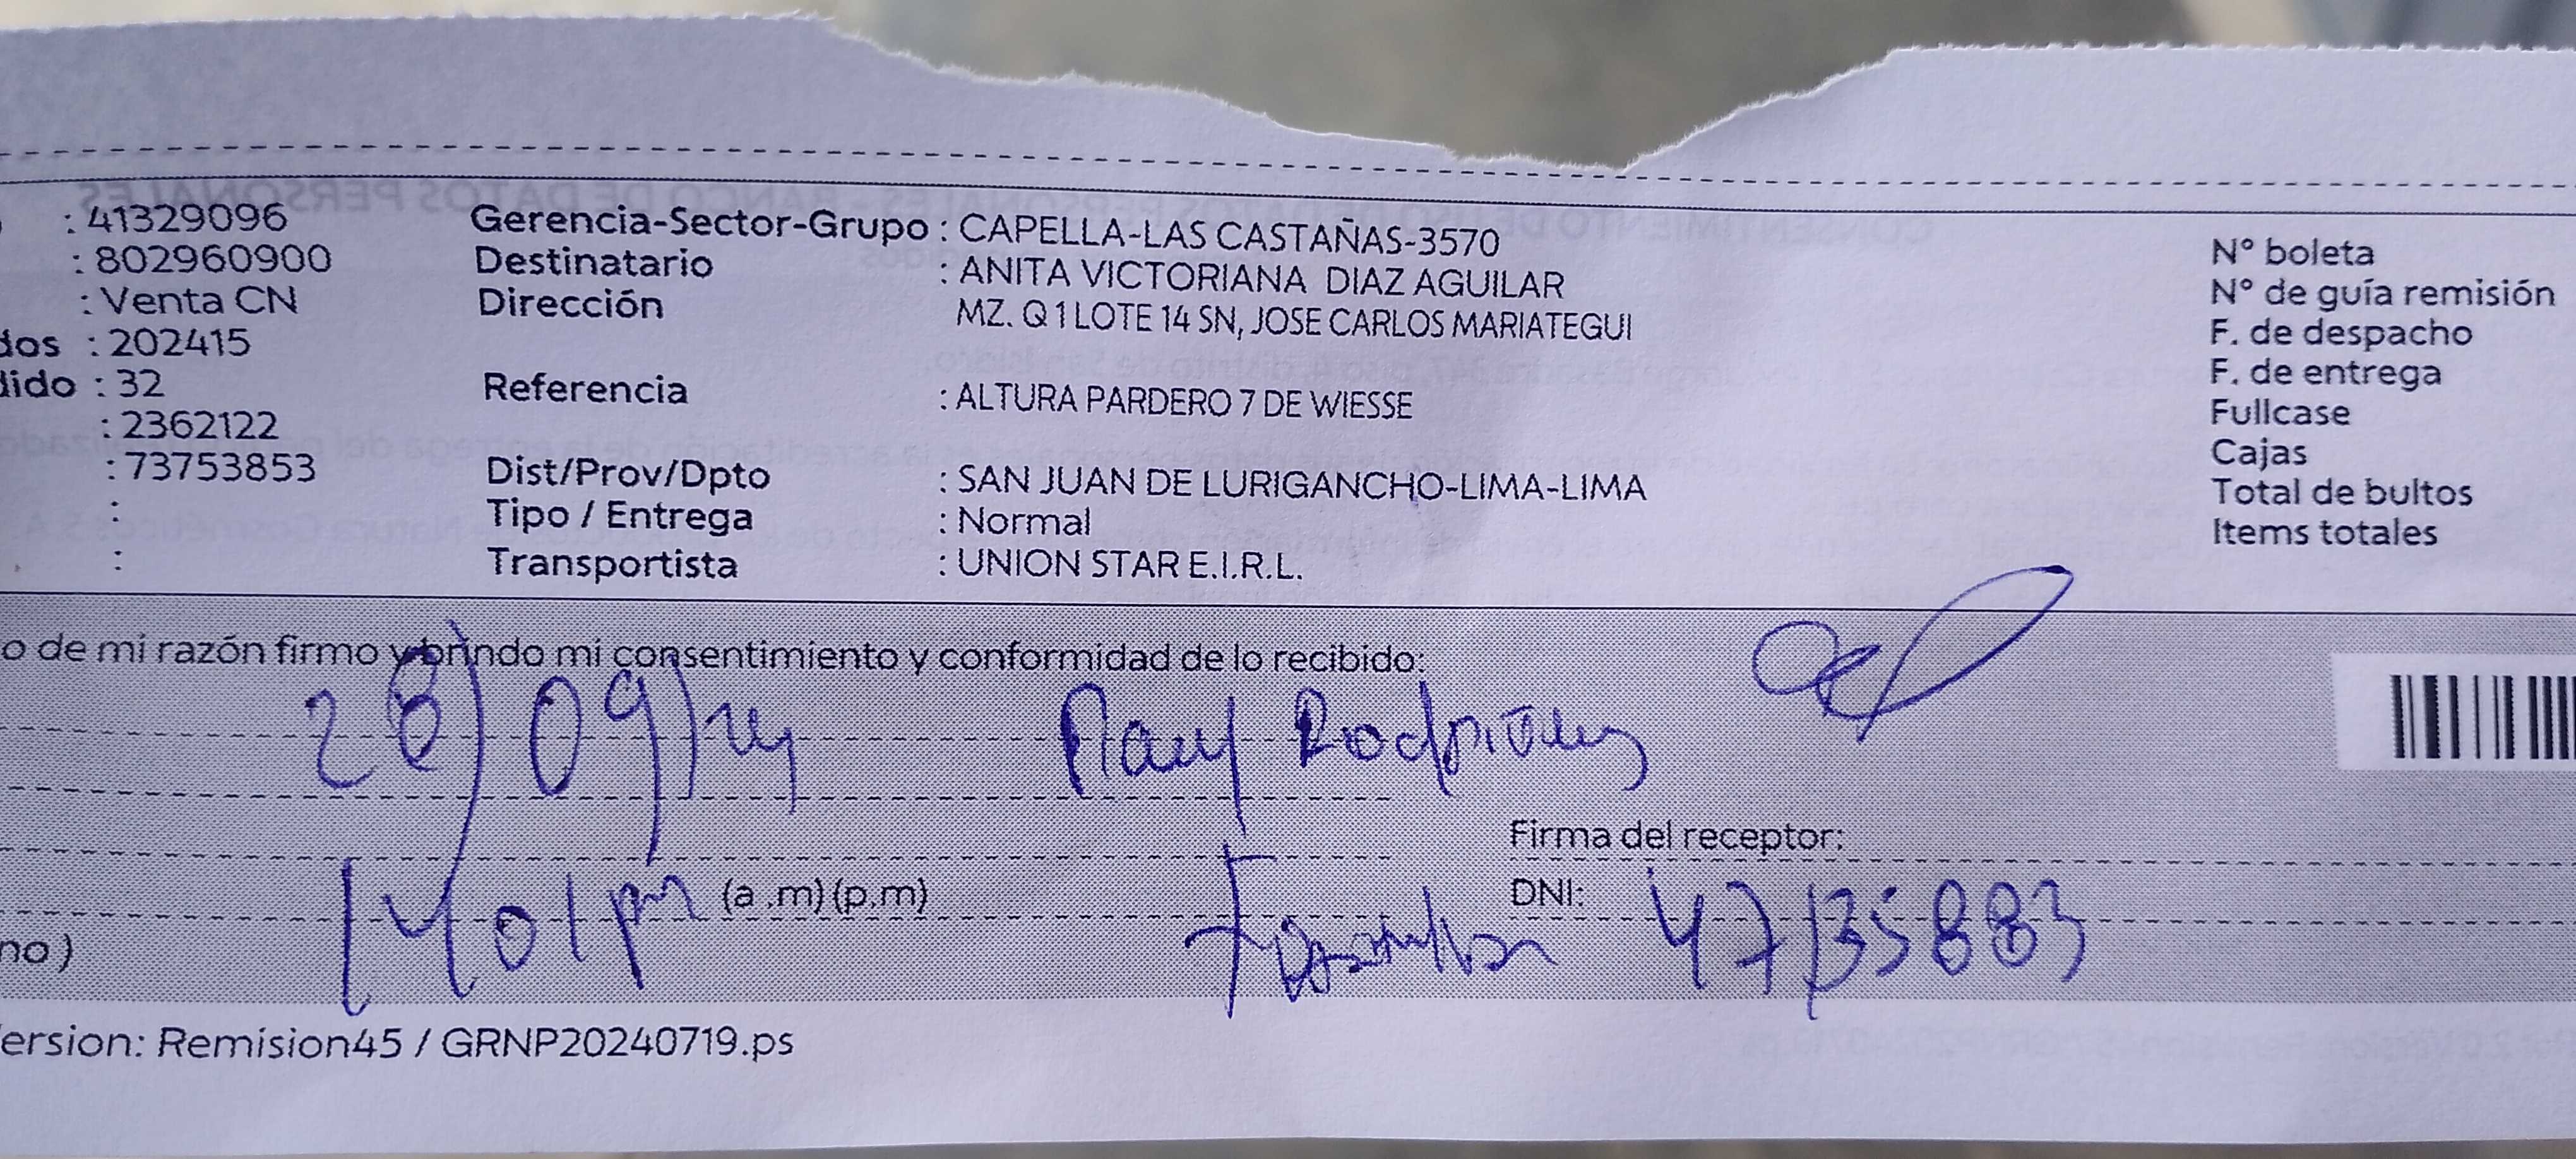 : 41329096 Gerencia-Sector-Grupo : CAPELLA-LAS CASTAÑAS-3570
: 802960900 Destinatario : ANITA VICTORIANA DIAZ AGUILAR
: Venta CN Dirección MZ. Q 1 LOTE 14 SN, JOSE CARLOS MARIATEGUI
dos : 202415
dido : 32 Referencia : ALTURA PARDERO 7 DE WIESSE
: 2362122
: 73753853 Dist/Prov/Dpto : SAN JUAN DE LURIGANCHO-LIMA-LIMA
: Tipo / Entrega : Normal
: Transportista : UNION STAR E.I.R.L.
N° boleta
N° de guía remisión
F. de despacho
F. de entrega
Fullcase
Cajas
Total de bultos
Items totales
o de mi razón firmo y brindo mi consentimiento y conformidad de lo recibido:
28/09/24 Rodriguez
Firma del receptor:
1401pm (a .m) (p.m) DNI: 47135883
no )
ersion: Remision45 / GRNP20240719.ps